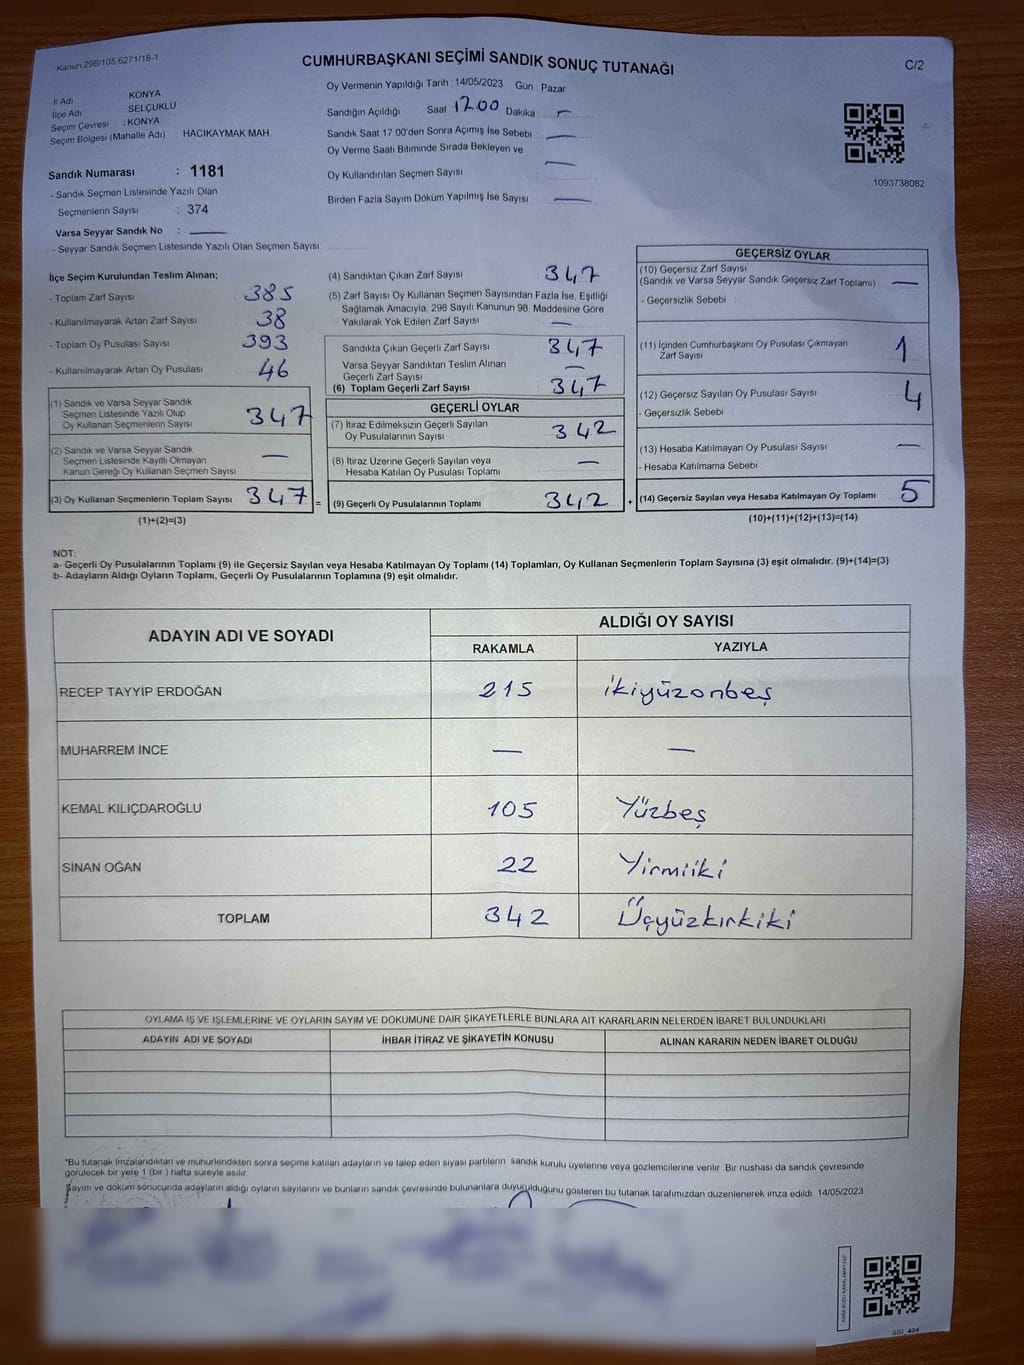 Kanun:298/105,6271/18-1
CUMHURBAŞKANI SEÇİMİ SANDIK SONUÇ TUTANAĞI
C/2
İl Adı KONYA
İlçe Adı SELÇUKLU
Seçim Çevresi : KONYA
Seçim Bölgesi (Mahalle Adı) HACIKAYMAK MAH
Sandık Numarası : 1181
- Sandık Seçmen Listesinde Yazılı Olan
Seçmenlerin Sayısı : 374
Varsa Seyyar Sandık No : —
- Seyyar Sandık Seçmen Listesinde Yazılı Olan Seçmen Sayısı
Oy Vermenin Yapıldığı Tarih : 14/05/2023 Gün : Pazar
Sandığın Açıldığı Saat 1700 Dakika : —
Sandık Saat 17:00'den Sonra Açımış İse Sebebi —
Oy Verme Saati Bitiminde Sırada Bekleyen ve
Oy Kullandırılan Seçmen Sayısı —
Birden Fazla Sayım Döküm Yapılmış İse Sayısı —
1093738082
İlçe Seçim Kurulundan Teslim Alınan;
- Toplam Zarf Sayısı 385
- Kullanılmayarak Artan Zarf Sayısı 38
- Toplam Oy Pusulası Sayısı 393
- Kullanılmayarak Artan Oy Pusulası 46
(1) Sandık ve Varsa Seyyar Sandık
Seçmen Listesinde Yazılı Olup
Oy Kullanan Seçmenlerin Sayısı 347
(2) Sandık ve Varsa Seyyar Sandık
Seçmen Listesinde Kayıtlı Olmayan
Kanun Gereği Oy Kullanan Seçmen Sayısı —
(3) Oy Kullanan Seçmenlerin Toplam Sayısı 347 =
(1)+(2)=(3)
(4) Sandıktan Çıkan Zarf Sayısı 347
(5) Zarf Sayısı Oy Kullanan Seçmen Sayısından Fazla İse, Eşitliği
Sağlamak Amacıyla, 298 Sayılı Kanunun 98. Maddesine Göre
Yakılarak Yok Edilen Zarf Sayısı —
Sandıkta Çıkan Geçerli Zarf Sayısı 347
Varsa Seyyar Sandıktan Teslim Alınan
Geçerli Zarf Sayısı —
(6) Toplam Geçerli Zarf Sayısı 347
GEÇERLİ OYLAR
(7) İtiraz Edilmeksizin Geçerli Sayılan
Oy Pusulalarının Sayısı 342
(8) İtiraz Üzerine Geçerli Sayılan veya
Hesaba Katılan Oy Pusulası Toplamı —
(9) Geçerli Oy Pusulalarının Toplamı 342 +
GEÇERSİZ OYLAR
(10) Geçersiz Zarf Sayısı
(Sandık ve Varsa Seyyar Sandık Geçersiz Zarf Toplamı) —
- Geçersizlik Sebebi :
(11) İçinden Cumhurbaşkanı Oy Pusulası Çıkmayan
Zarf Sayısı 1
(12) Geçersiz Sayılan Oy Pusulası Sayısı 4
- Geçersizlik Sebebi :
(13) Hesaba Katılmayan Oy Pusulası Sayısı —
- Hesaba Katılmama Sebebi :
(14) Geçersiz Sayılan veya Hesaba Katılmayan Oy Toplamı 5
(10)+(11)+(12)+(13)=(14)
NOT:
a- Geçerli Oy Pusulalarının Toplamı (9) ile Geçersiz Sayılan veya Hesaba Katılmayan Oy Toplamı (14) Toplamları, Oy Kullanan Seçmenlerin Toplam Sayısına (3) eşit olmalıdır. (9)+(14)=(3)
b- Adayların Aldığı Oyların Toplamı, Geçerli Oy Pusulalarının Toplamına (9) eşit olmalıdır.
ADAYIN ADI VE SOYADI ALDIĞI OY SAYISI
RAKAMLA YAZIYLA
RECEP TAYYİP ERDOĞAN 215 ikiyüzonbeş
MUHARREM İNCE — —
KEMAL KILIÇDAROĞLU 105 Yüzbeş
SİNAN OĞAN 22 Yirmiiki
TOPLAM 342 Üçyüzkırkiki
OYLAMA İŞ VE İŞLEMLERİNE VE OYLARIN SAYIM VE DÖKÜMÜNE DAİR ŞİKAYETLERLE BUNLARA AİT KARARLARIN NELERDEN İBARET BULUNDUKLARI
ADAYIN ADI VE SOYADI İHBAR İTİRAZ VE ŞİKAYETİN KONUSU ALINAN KARARIN NEDEN İBARET OLDUĞU
*Bu tutanak imzalandıktan ve mühürlendikten sonra seçime katılan adayların ve talep eden siyasi partilerin sandık kurulu üyelerine veya gözlemcilerine verilir. Bir nushası da sandık çevresinde
görülecek bir yere 1 (bir) hafta süreyle asılır.
Sayım ve döküm sonucunda adayların aldığı oyların sayılarını ve bunların sandık çevresinde bulunanlara duyurulduğunu gösteren bu tutanak tarafımızdan düzenlenerek imza edildi. 14/05/2023
SSI_404